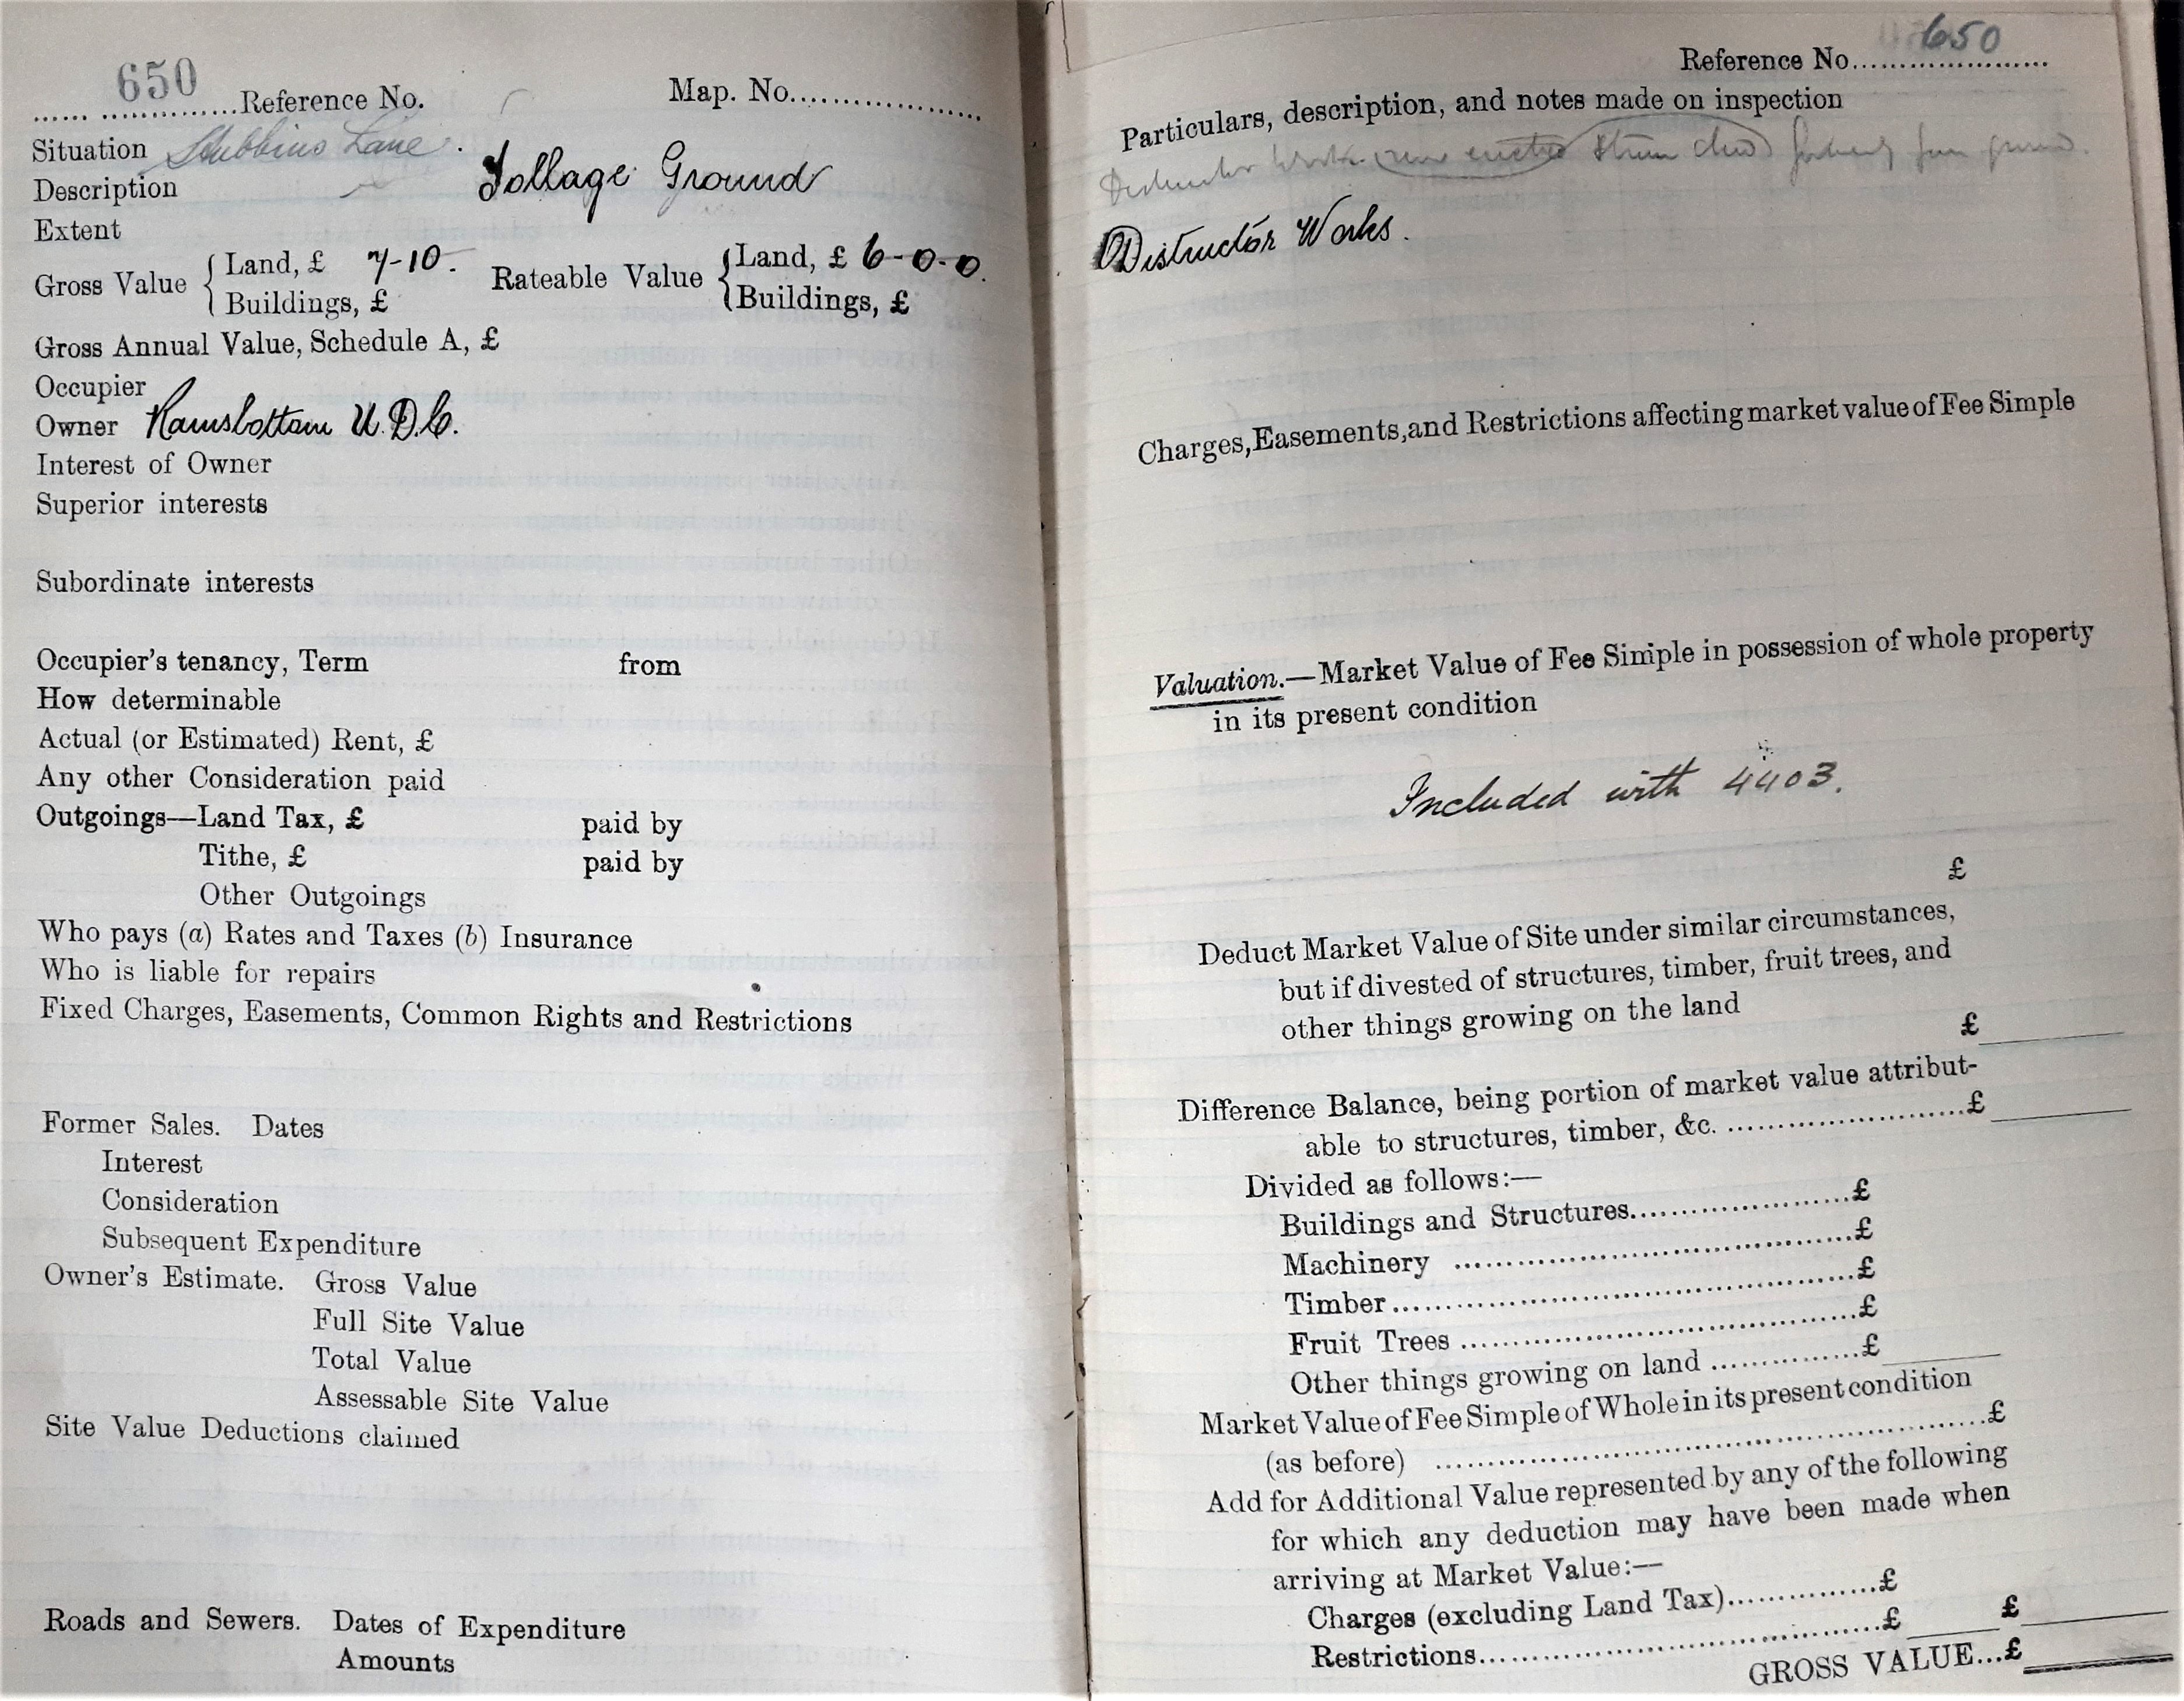 650
Reference No. Map. No.
Situation Stubbins Lane.
Description Tollage Ground
Extent
Gross Value { Land, £ 7-10. Rateable Value { Land, £ 6-0-0.
Buildings, £ Buildings, £
Gross Annual Value, Schedule A, £
Occupier
Owner Ramsbottom U.D.C.
Interest of Owner
Superior interests
Subordinate interests
Occupier's tenancy, Term from
How determinable
Actual (or Estimated) Rent, £
Any other Consideration paid
Outgoings—Land Tax, £ paid by
Tithe, £ paid by
Other Outgoings
Who pays (a) Rates and Taxes (b) Insurance
Who is liable for repairs
Fixed Charges, Easements, Common Rights and Restrictions
Former Sales. Dates
Interest
Consideration
Subsequent Expenditure
Owner's Estimate. Gross Value
Full Site Value
Total Value
Assessable Site Value
Site Value Deductions claimed
Roads and Sewers. Dates of Expenditure
Amounts
Reference No. 650
Particulars, description, and notes made on inspection
Distructor Works.
Charges, Easements, and Restrictions affecting market value of Fee Simple
Valuation.—Market Value of Fee Simple in possession of whole property
in its present condition
Included with 4403.
£
Deduct Market Value of Site under similar circumstances,
but if divested of structures, timber, fruit trees, and
other things growing on the land
£
Difference Balance, being portion of market value attribut-
able to structures, timber, &c. £
Divided as follows:—
Buildings and Structures £
Machinery £
Timber £
Fruit Trees £
Other things growing on land £
Market Value of Fee Simple of Whole in its present condition
(as before) £
Add for Additional Value represented by any of the following
for which any deduction may have been made when
arriving at Market Value:—
Charges (excluding Land Tax) £
Restrictions £ £
GROSS VALUE...£